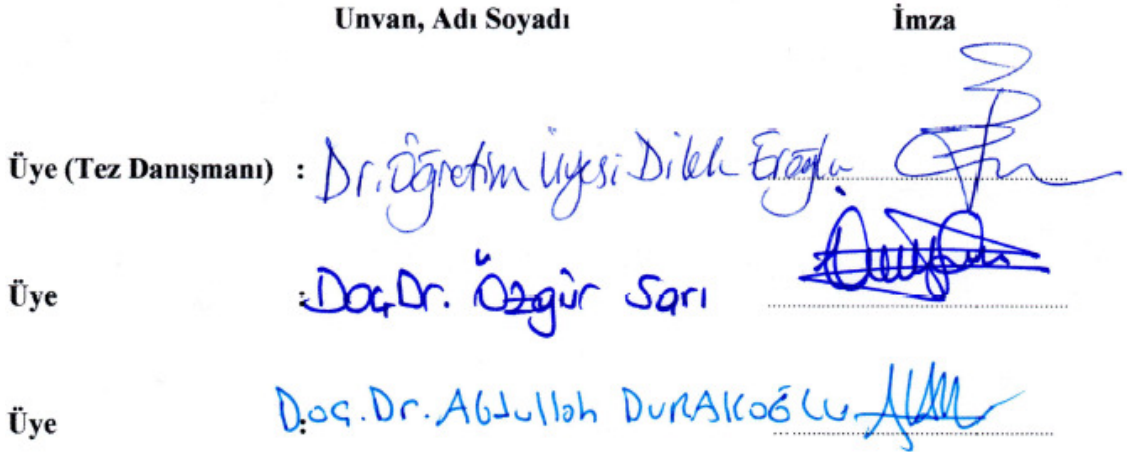 Unvan, Adı Soyadı İmza
Üye (Tez Danışmanı) : Dr. Öğretim Üyesi Dilek Eroğlu
Üye : Doç.Dr. Özgür Sarı
Üye : Doç.Dr. Abdullah DURAKOĞLU